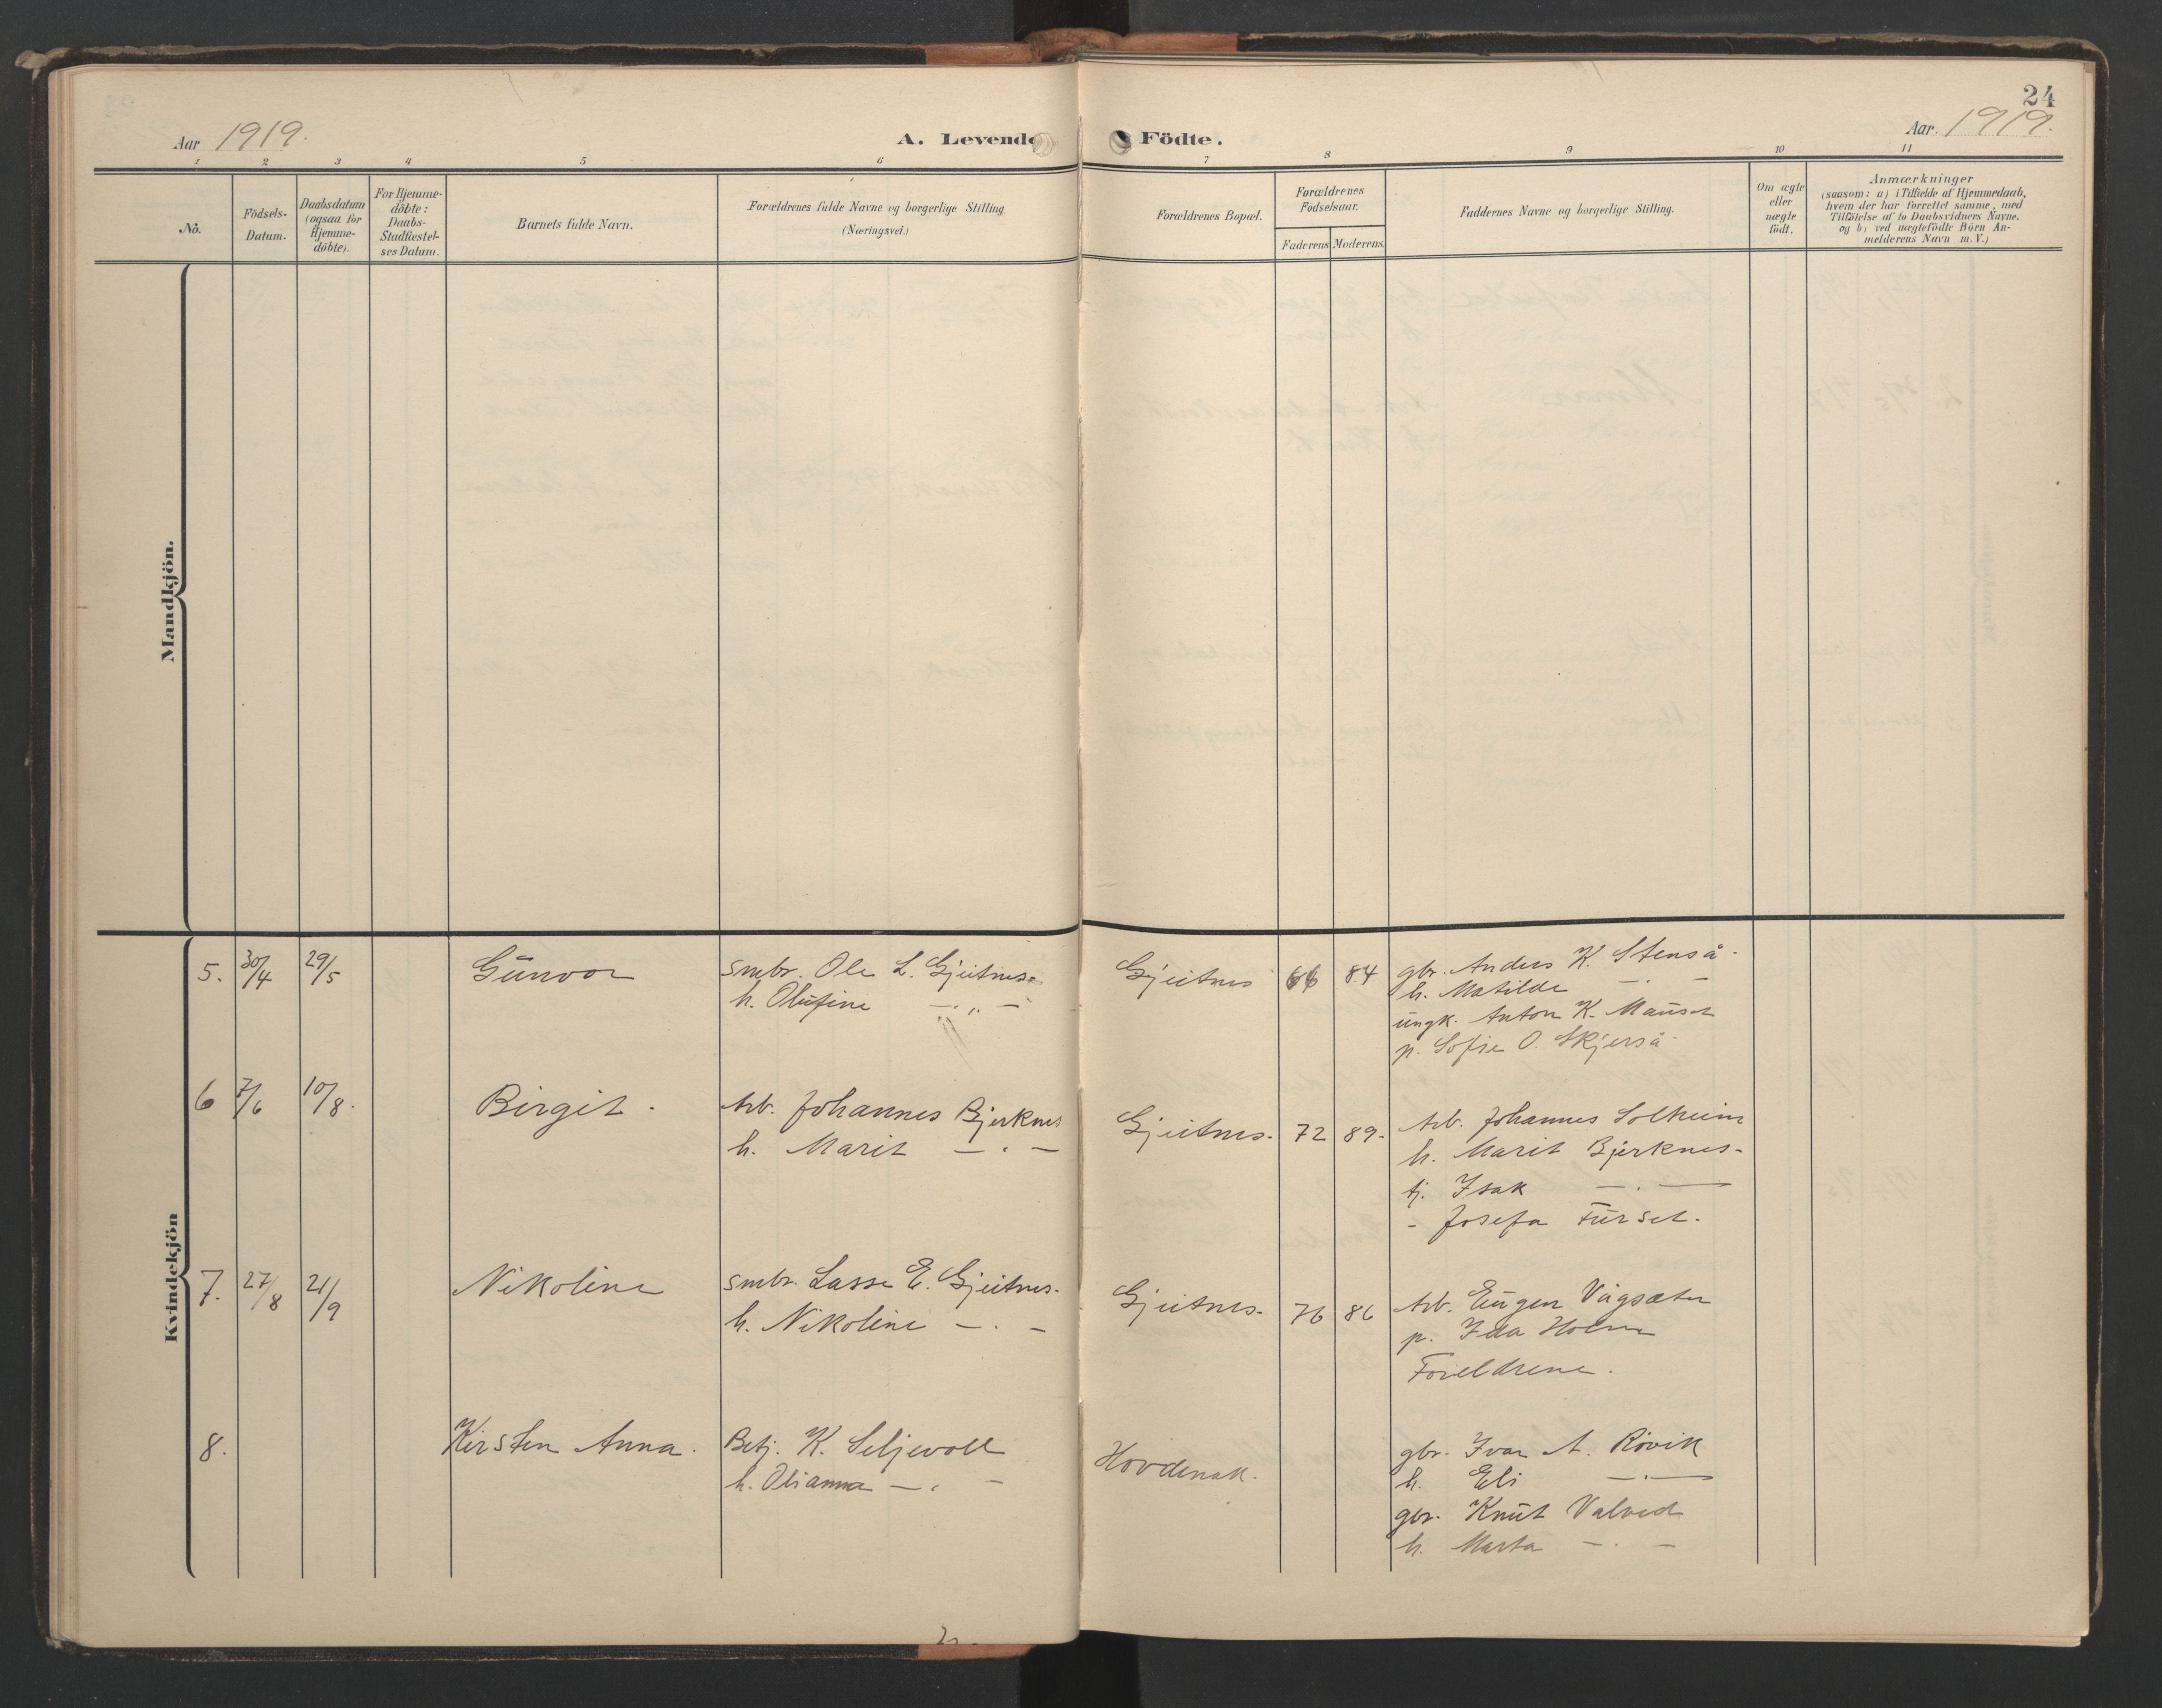 24
Aar 1919.
A. Levende Födte.
Aar. 1919.
1 2 3 4 5 6 7 8 9 10 11
No.
Födsels-
Datum.
Daabsdatum
(ogsaa for
Hjemme-
döbte).
For Hjemme-
döbte:
Daabs-
Stadfæstel-
ses Datum.
Barnets fulde Navn.
Forældrenes fulde Navne og borgerlige Stilling
(Næringsvei.)
Forældrenes Bopæl.
Forældrenes
Födselsaar.
Faderens Moderens.
Faddernes Navne og borgerlige Stilling.
Om ægte
eller
uægte
födt.
Anmærkninger
(saasom: a) i Tilfælde af Hjemmedaab,
hvem der har forrettet samme, med
Tilföielse af to Daabsvidners Navne,
og b) ved uægtefödte Börn An-
melderens Navn m.V.)
Mandkjön.
Kvindekjön
5. 30/4 29/5 Gunvor smbr. Ole L. Gjeitnes. Gjeitnes 66 84 gbr. Anders K. Stenså.
h. Olufine — „ — h. Matilde — . —
ungk. Anton K. Mauset
p. Sofie O. Skjerså
6 7/6 10/8. Birgit. Arb. Johannes Bjerknes Gjeitnes. 72 89. Arb. Johannes Solheim
h. Marit — . — h. Marit Bjerknes.
tj. Isak — . —
- Josefa Furset.
7. 27/8 21/9 Nikoline smbr. Lasse E. Gjeitnes. Gjeitnes. 76 86 Arb. Eugen Vågsæter
h. Nikoline — . — p. Ida Holm
Foreldrene.
8. Kirsten Anna. Betj. K. Seljevoll Hovdenak. gbr. Ivar A. Rövik
h. Olianna — . — h. Eli — . —
gbr. Knut Valved
h. Marta — . —